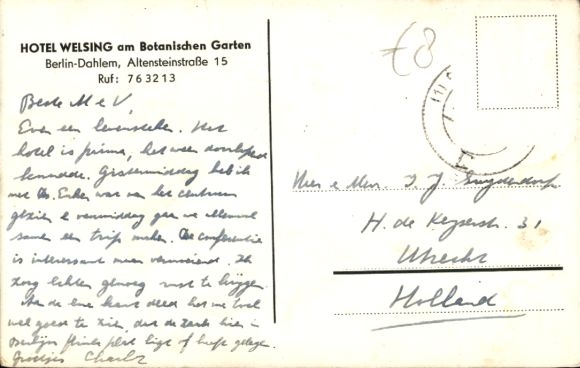 HOTEL WELSING am Botanischen Garten
Berlin-Dahlem, Altensteinstraße 15
Ruf: 763213
€8
Beste M e V,
Even een levensteken. Het
hotel is prima, het weer
Gistermiddag heb ik
met Dr. van het centrum
gezien & vanmiddag gaan we allemaal
samen een trip maken. De conferentie
is interessant maar vermoeiend. Ik
zorg echter genoeg rust te krijgen.
Aan de ene kant deed het me
wel goed te zien, dat de zaak hier in
Berlijn plat ligt of heeft gelegen.
Groetjes Charles
Mevr. J. J.
H. de Keyserstr. 31
Utrecht
Holland